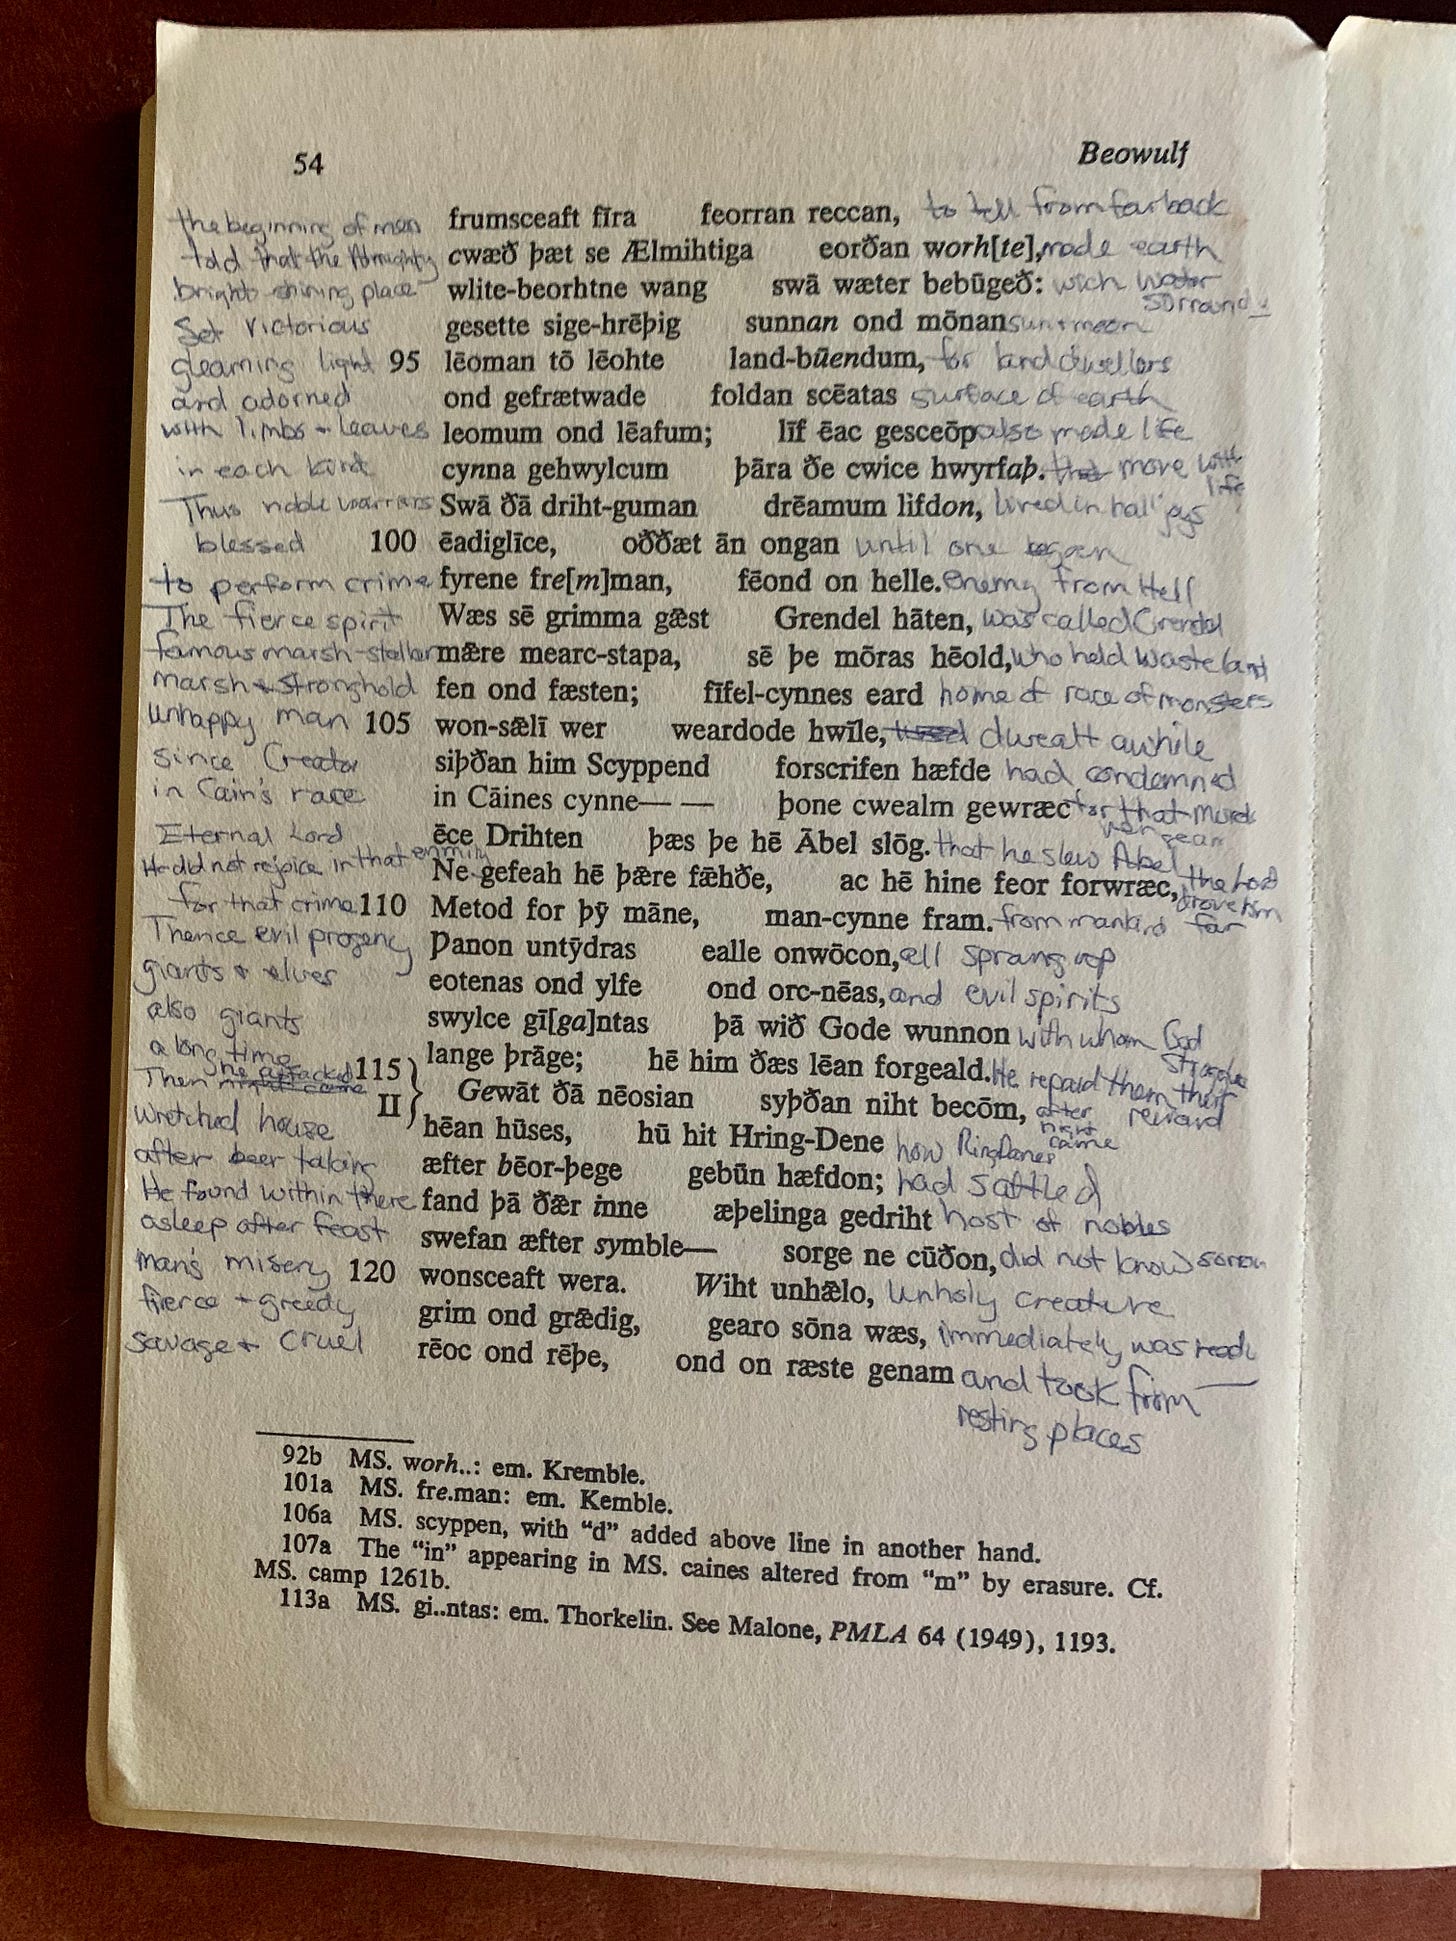 54 Beowulf
the beginning of men frumsceaft fīra feorran reccan, to tell from far back
told that the Almighty cwæð þæt se Ælmihtiga eorðan worh[te], made earth
bright shining place wlite-beorhtne wang swā wæter bebūgeð: wich water
surrounds
Set victorious gesette sige-hrēþig sunnan ond mōnan sun + moon
gleaming light 95 lēoman tō lēohte land-būendum, for land dwellers
and adorned ond gefrætwade foldan scēatas surface of earth
with limbs + leaves leomum ond lēafum; līf ēac gesceōp also made life
in each kind cynna gehwylcum þāra ðe cwice hwyrfaþ. that move with
life
Thus noble warriors Swā ðā driht-guman drēamum lifdon, lived in hall joys
blessed 100 ēadiglīce, oððæt ān ongan until one began
to perform crime fyrene fre[m]man, fēond on helle. enemy from Hell
The fierce spirit Wæs sē grimma gǣst Grendel hāten, was called Grendel
famous marsh-stalker mǣre mearc-stapa, sē þe mōras hēold, who held wasteland
marsh & stronghold fen ond fæsten; fīfel-cynnes eard home of race of monsters
unhappy man 105 won-sǣlī wer weardode hwīle, dwealt awhile
since Creator siþðan him Scyppend forscrifen hæfde had condemned
in Cain's race in Cāines cynne— — þone cwealm gewræc for that
Eternal Lord ēce Drihten þæs þe hē Ābel slōg. that he slew Abel
He did not rejoice in that enmity Ne gefeah hē þǣre fǣhðe, ac hē hine feor forwræc, the Lord
drove him
for that crime 110 Metod for þȳ māne, man-cynne fram. from mankind far
Thence evil progeny Þanon untȳdras ealle onwōcon, all sprang up
giants + elves eotenas ond ylfe ond orc-nēas, and evil spirits
also giants swylce gī[ga]ntas þā wið Gode wunnon with whom God
a long time 115 lange þrāge; hē him ðæs lēan forgeald. He repaid them their
reward
Then he attacked II Gewāt ðā nēosian syþðan niht becōm, after
night
came
wretched house hēan hūses, hū hit Hring-Dene how RingDanes
after beer taking æfter bēor-þege gebūn hæfdon; had sattled
He found within there fand þā ðǣr inne æþelinga gedriht host of nobles
asleep after feast swefan æfter symble— sorge ne cūðon, did not know sorrow
man's misery 120 wonsceaft wera. Wiht unhǣlo, Unholy creature
fierce + greedy grim ond grǣdig, gearo sōna wæs, immediately was ready
savage + cruel rēoc ond rēþe, ond on ræste genam and took from
resting places
92b MS. worh..: em. Kremble.
101a MS. fre.man: em. Kemble.
106a MS. scyppen, with “d” added above line in another hand.
107a The “in” appearing in MS. caines altered from “m” by erasure. Cf.
MS. camp 1261b.
113a MS. gi..ntas: em. Thorkelin. See Malone, PMLA 64 (1949), 1193.